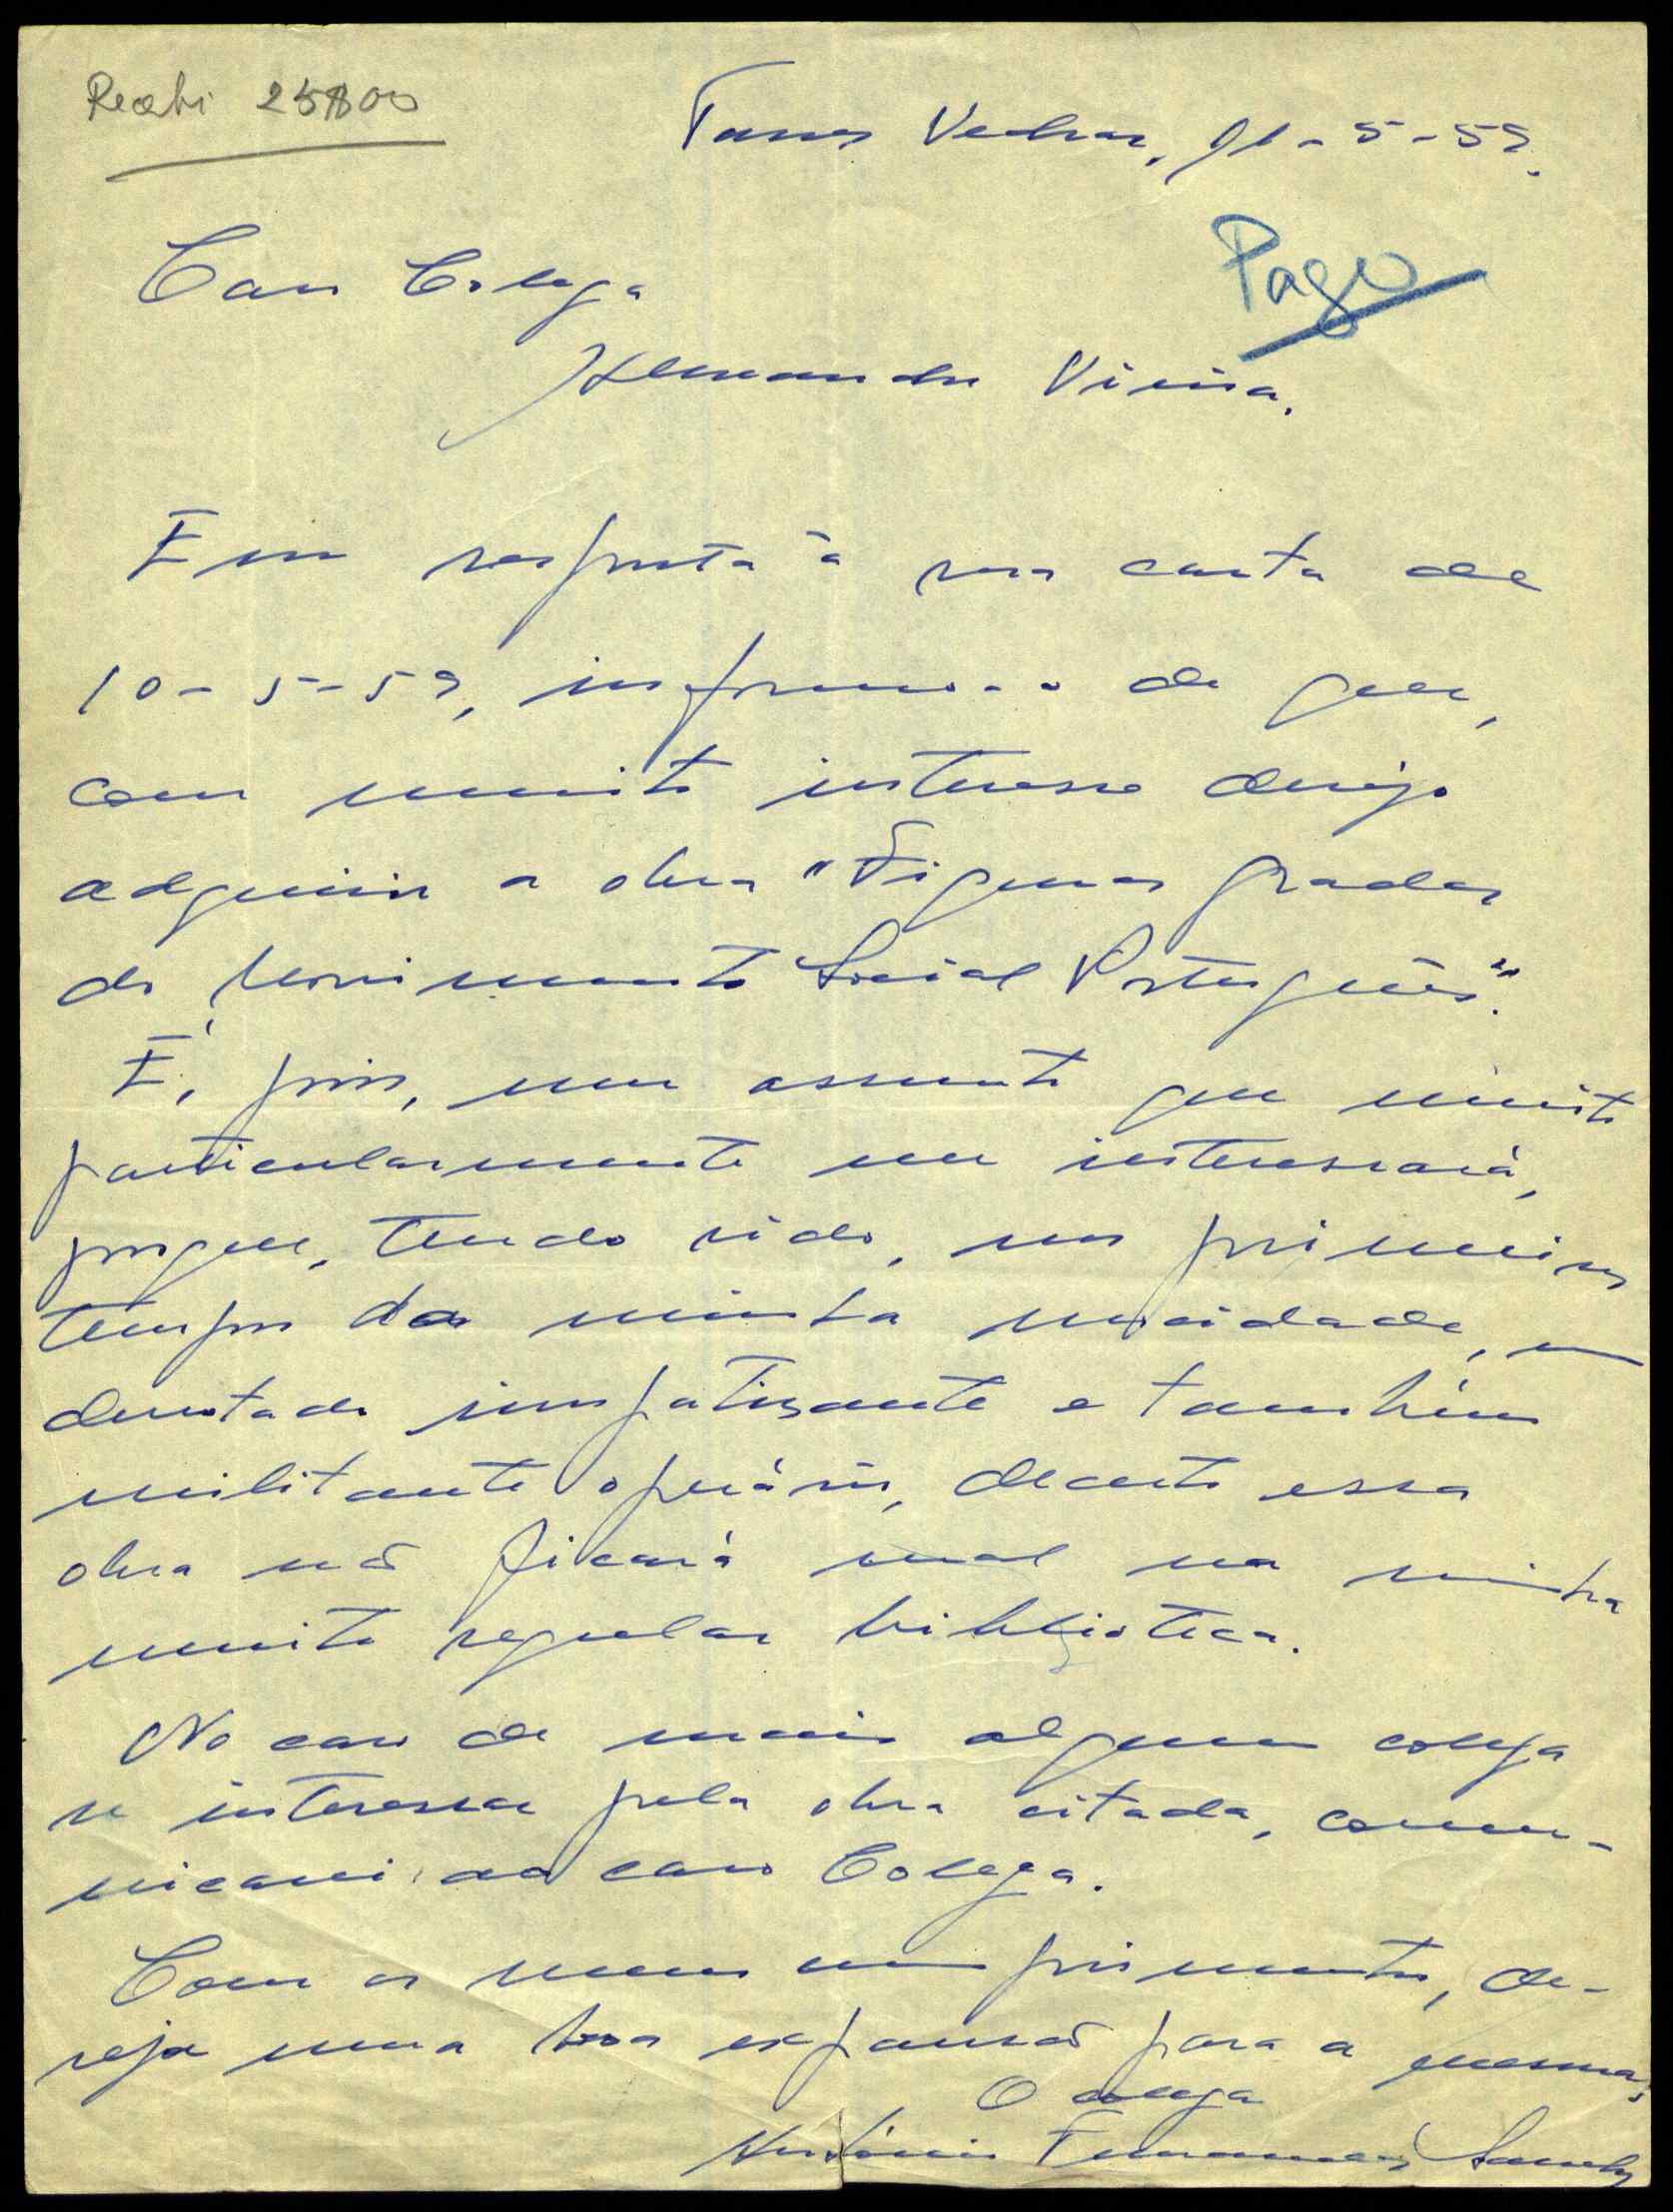 Recebi 25$00
Torres Vedras, 21-5-59.
Pago
Caro Colega
Alexandre Vieira.
Em resposta à sua carta de
10-5-59, informo-o de que,
com muito interesse desejo
adquirir a obra "Figuras gradas
do Movimento Social Português".
É, pois, um assunto que muito
particularmente me interessará,
porque, tendo sido, nos primeiros
tempos da minha mocidade, um
devotado simpatizante e também
militante operário, decerto essa
obra não ficará mal na minha
muito regular biblioteca.
No caso de mais algum colega
se interessar pela obra citada, comu-
nicarei ao caro Colega.
Com os meus cumprimentos, de-
seja uma boa expansão para a mesma,
O colega
António Fernandes